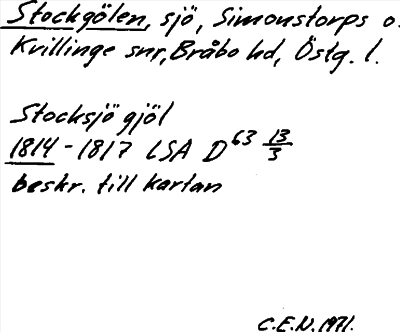 Stockgölen, sjö, Simonstorps o.
Kvillinge snr, Bråbo hd, Östg. l.
Stocksjö gjöl
1814 - 1817 LSA D 63 13/3
beskr. till kartan
C.E.N. 1971.